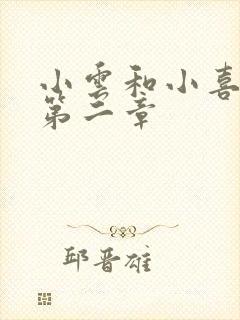 小雲和小喜
第二章
邱晋雄